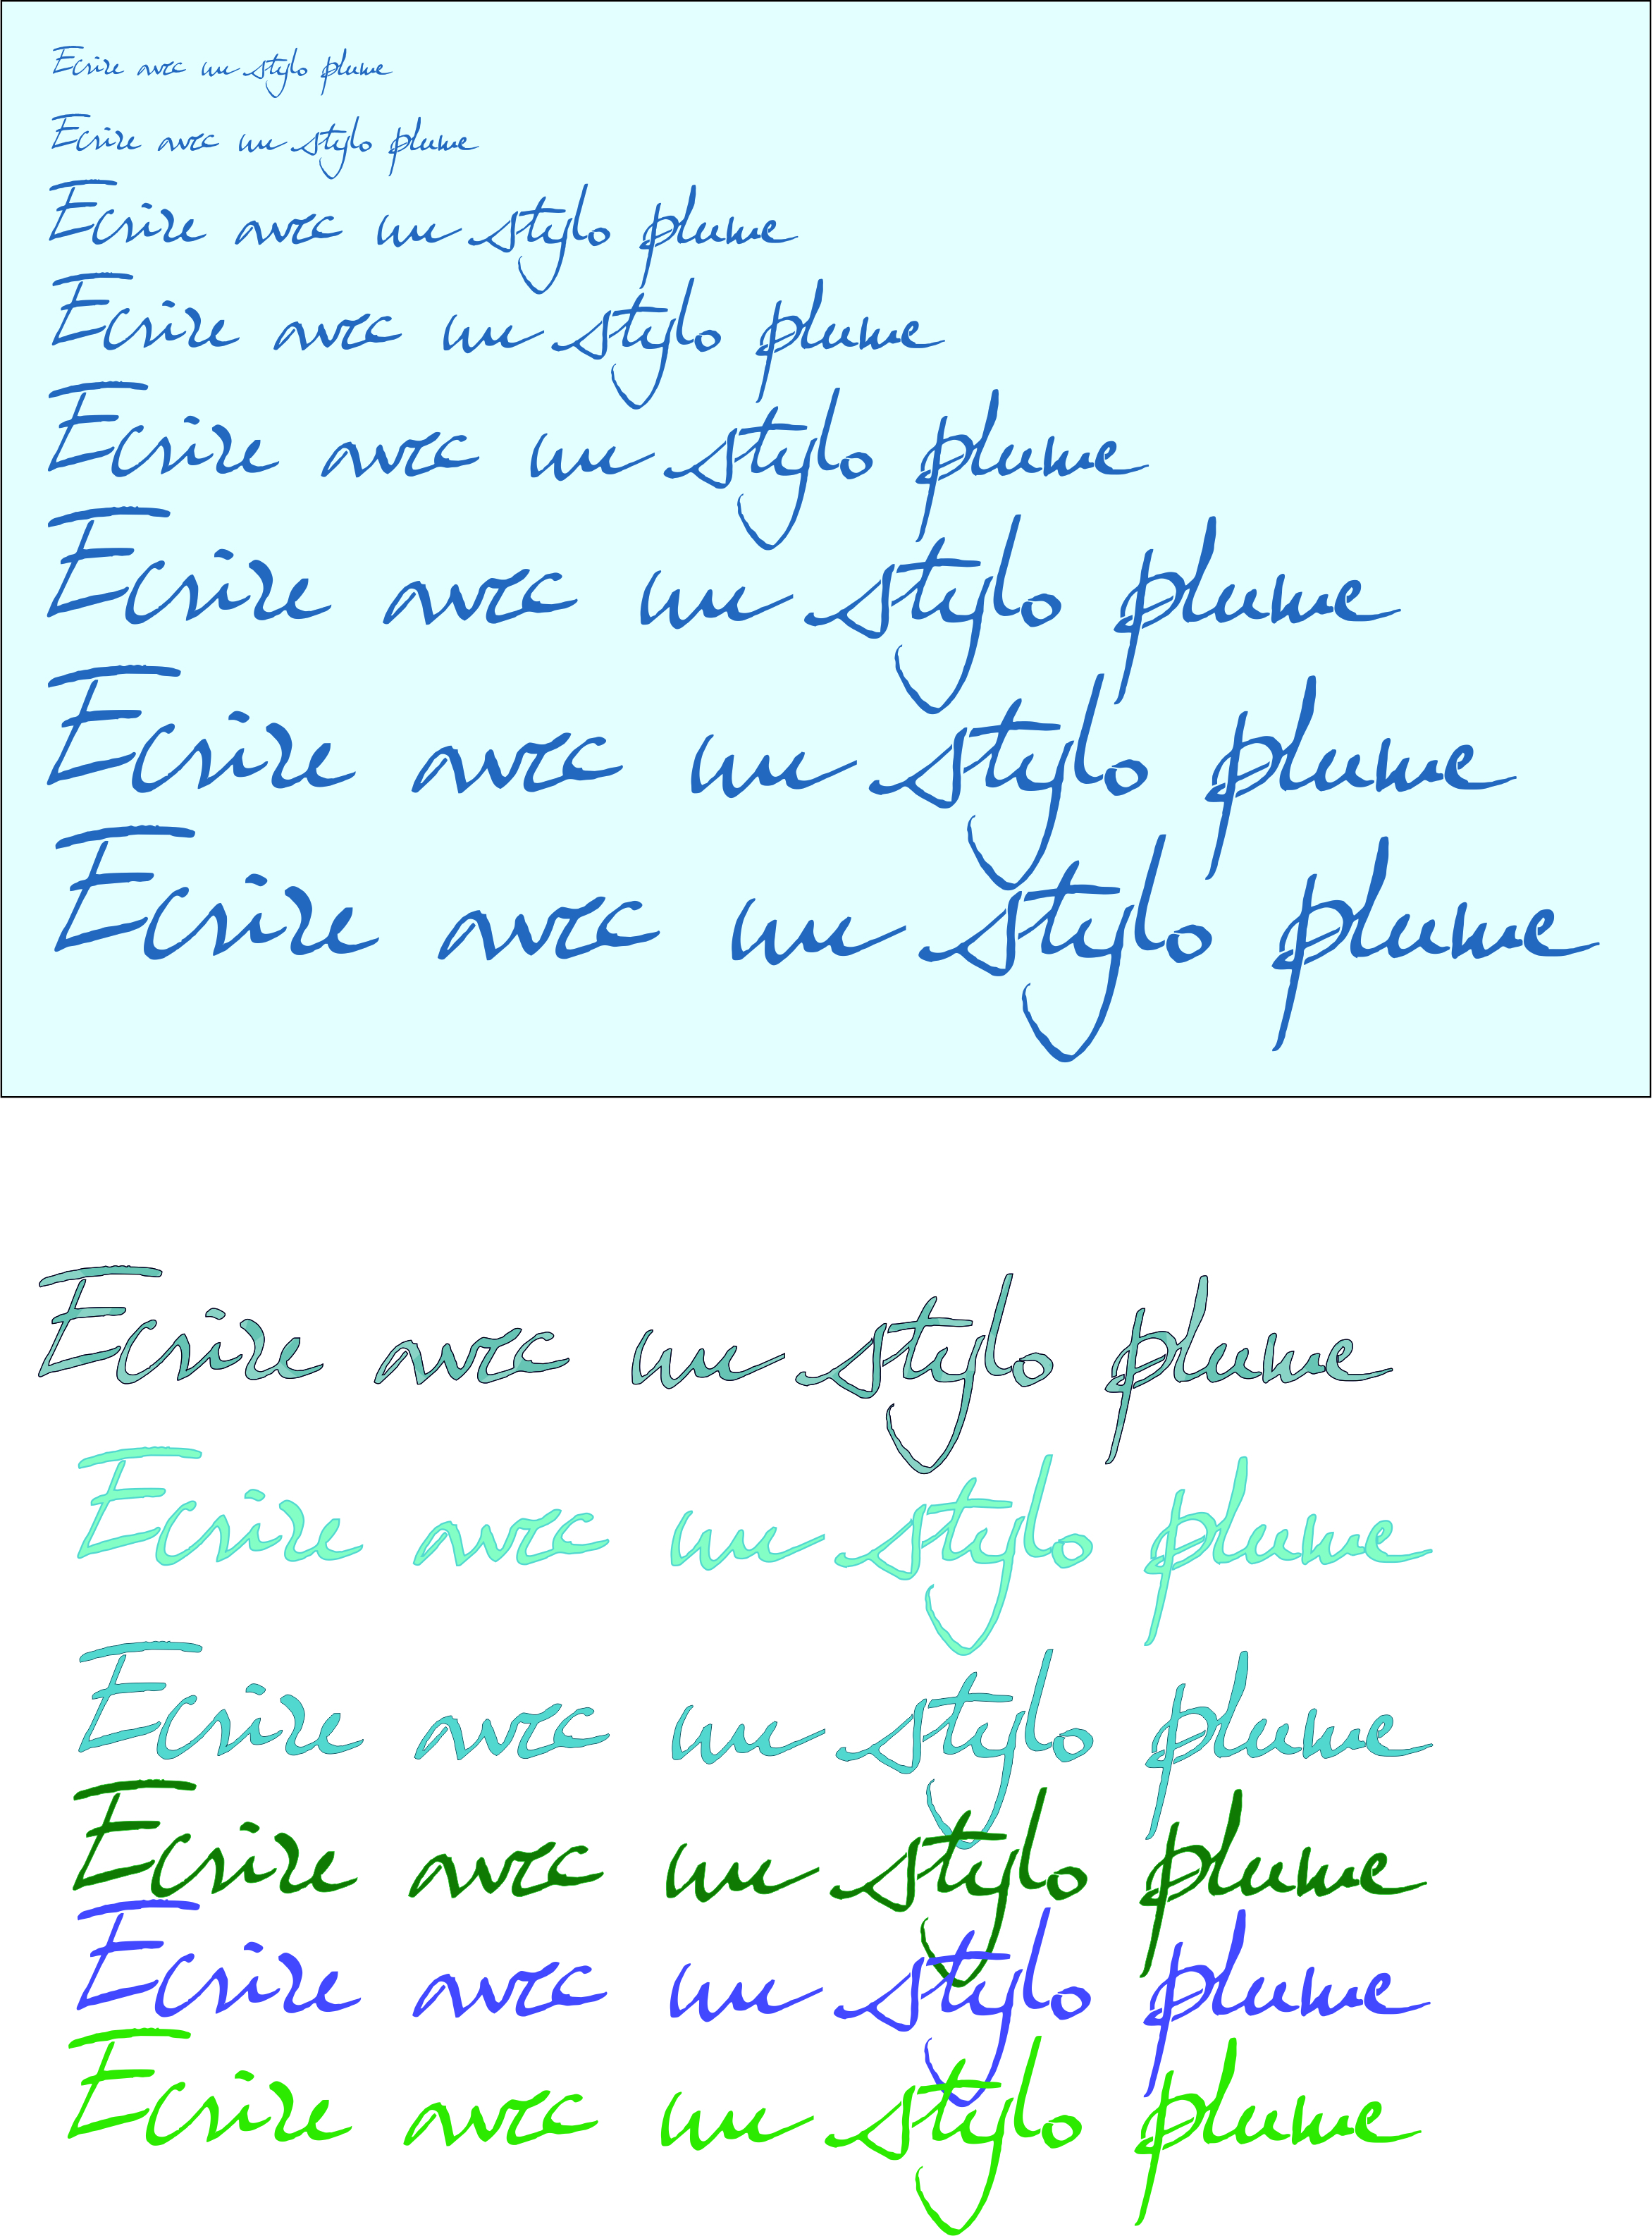 Ecrire avec un stylo plume
Ecrire avec un stylo plume
Ecrire avec un stylo plume
Ecrire avec un stylo plume
Ecrire avec un stylo plume
Ecrire avec un stylo plume
Ecrire avec un stylo plume
Ecrire avec un stylo plume
Ecrire avec un stylo plume
Ecrire avec un stylo plume
Ecrire avec un stylo plume
Ecrire avec un stylo plume
Ecrire avec un stylo plume
Ecrire avec un stylo plume